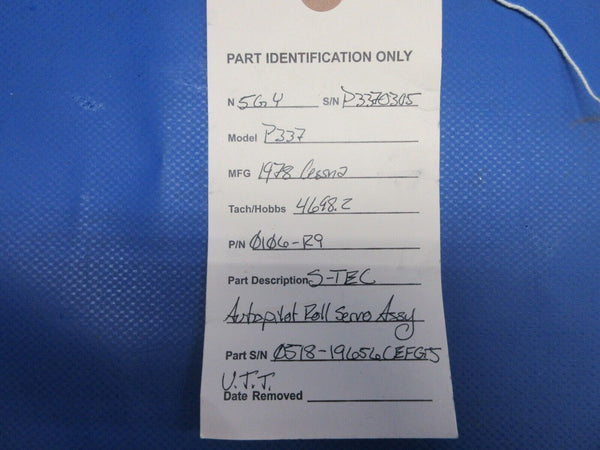 PART IDENTIFICATION ONLY
N 5GY S/N P3370305
Model P337
MFG 1978 Cessna
Tach/Hobbs 4698.2
P/N 0106-R9
Part Description S-TEC
Autopilot Roll Servo Assy
Part S/N 0518-19656CEFG5
U.T.T.
Date Removed